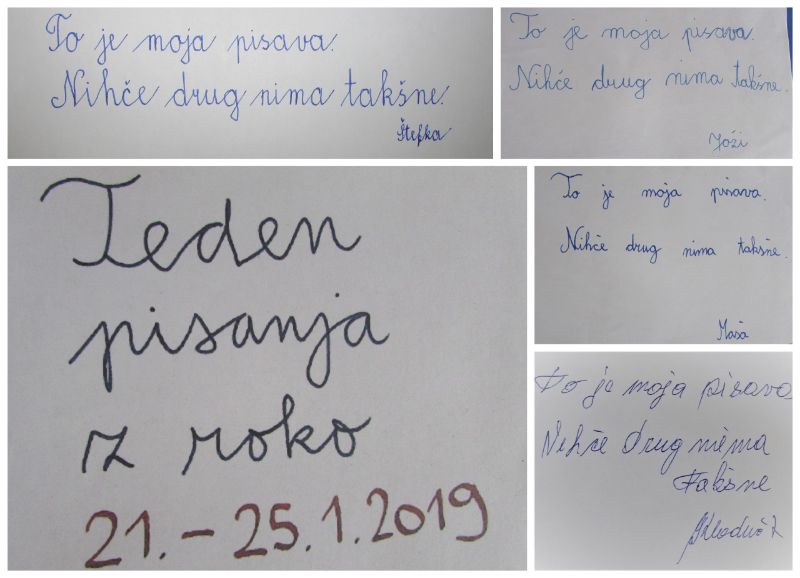 To je moja pisava.
Nihče drug nima takšne.
Štefka
To je moja pisava.
Nihče drug nima takšne.
Joži
Teden
pisanja
z roko
21. – 25. 1. 2019
To je moja pisava.
Nihče drug nima takšne.
Maša
To je moja pisava
Nihče drug nima
takšne